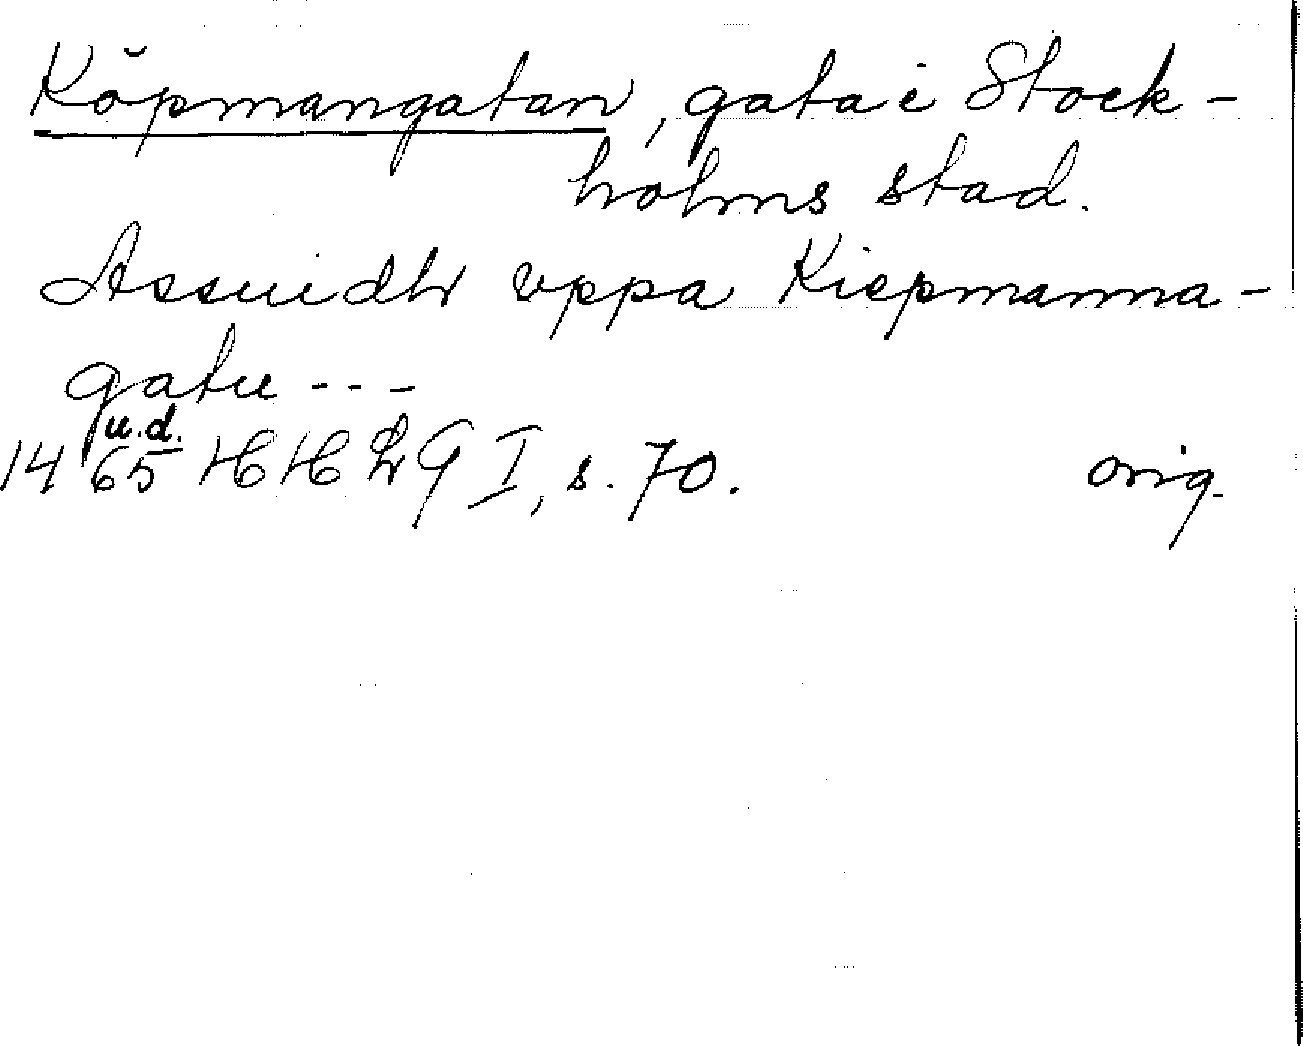 Köpmangatan, gata i Stock-
holms stad.
Assuidh vppa Kiepmanna-
gatu - - -
14 u.d. 65 HH Lg I, s. 70. orig.